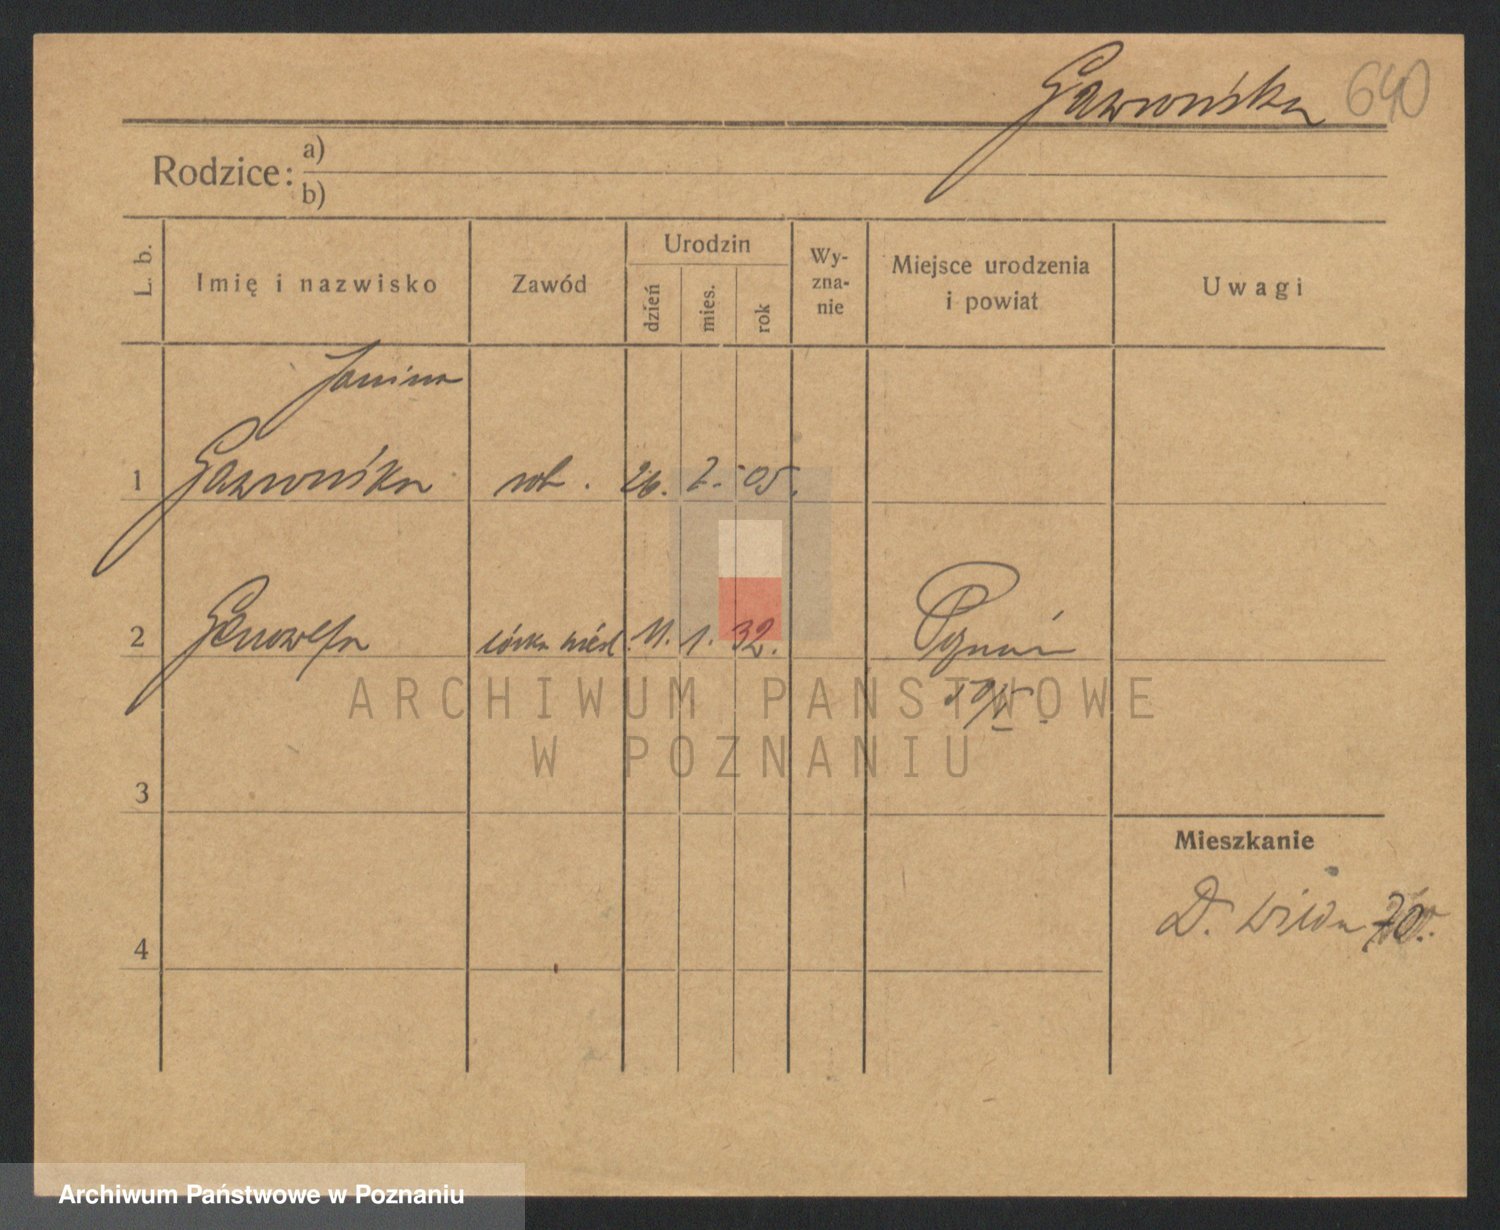 Gawrońska 640
Rodzice: a)
b)
L. b. Imię i nazwisko Zawód Urodzin dzień mies. rok Wy-zna-nie Miejsce urodzenia i powiat Uwagi
Janina
1 Gawrońska rob. 26. 2. 05.
2 Genowefa córka nieśl. 11. 1. 32. Poznań
3
Mieszkanie
D. Wilda 70.
4
ARCHIWUM PAŃSTWOWE
W POZNANIU
Archiwum Państwowe w Poznaniu